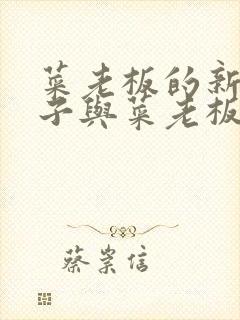 菜老板的新
子與菜老板
蔡崇信